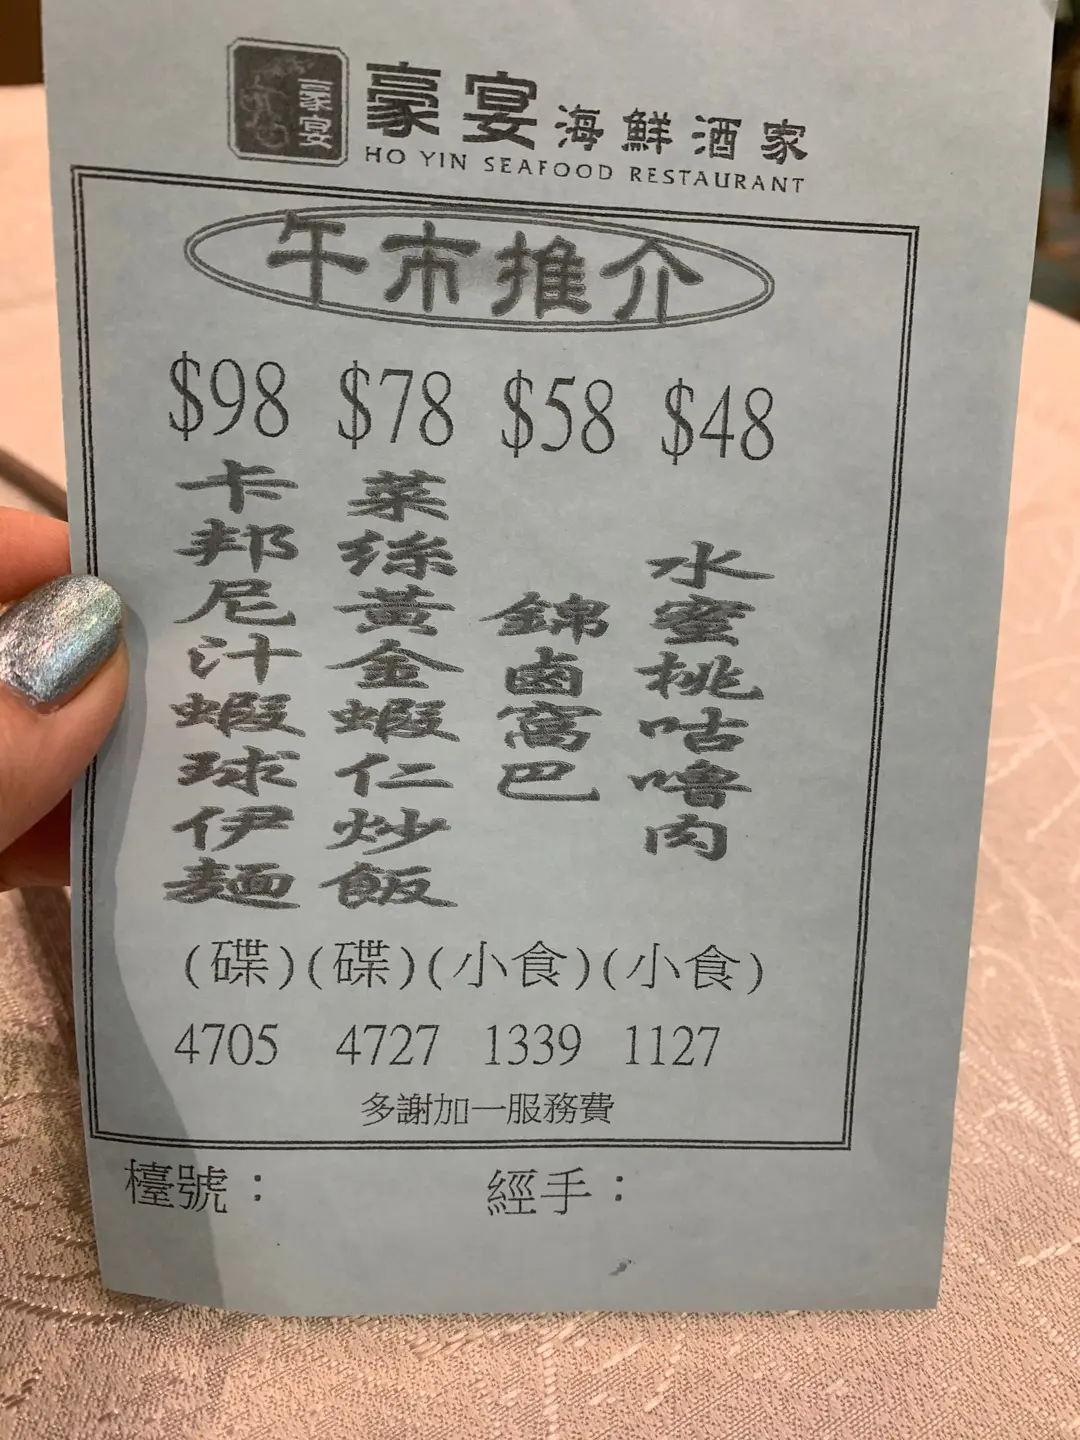 豪宴
豪宴海鮮酒家
HO YIN SEAFOOD RESTAURANT
午市推介
$98 $78 $58 $48
卡邦尼汁蝦球伊麵
菜絲黃金蝦仁炒飯
錦鹵窩巴
水蜜桃咕嚕肉
(碟)(碟)(小食)(小食)
4705 4727 1339 1127
多謝加一服務費
檯號： 經手：